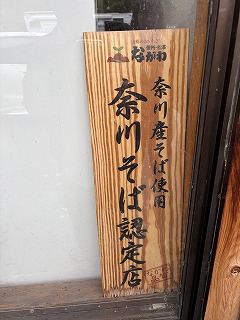 信州・松本
ながわ
奈川産そば使用
奈川そば認定店